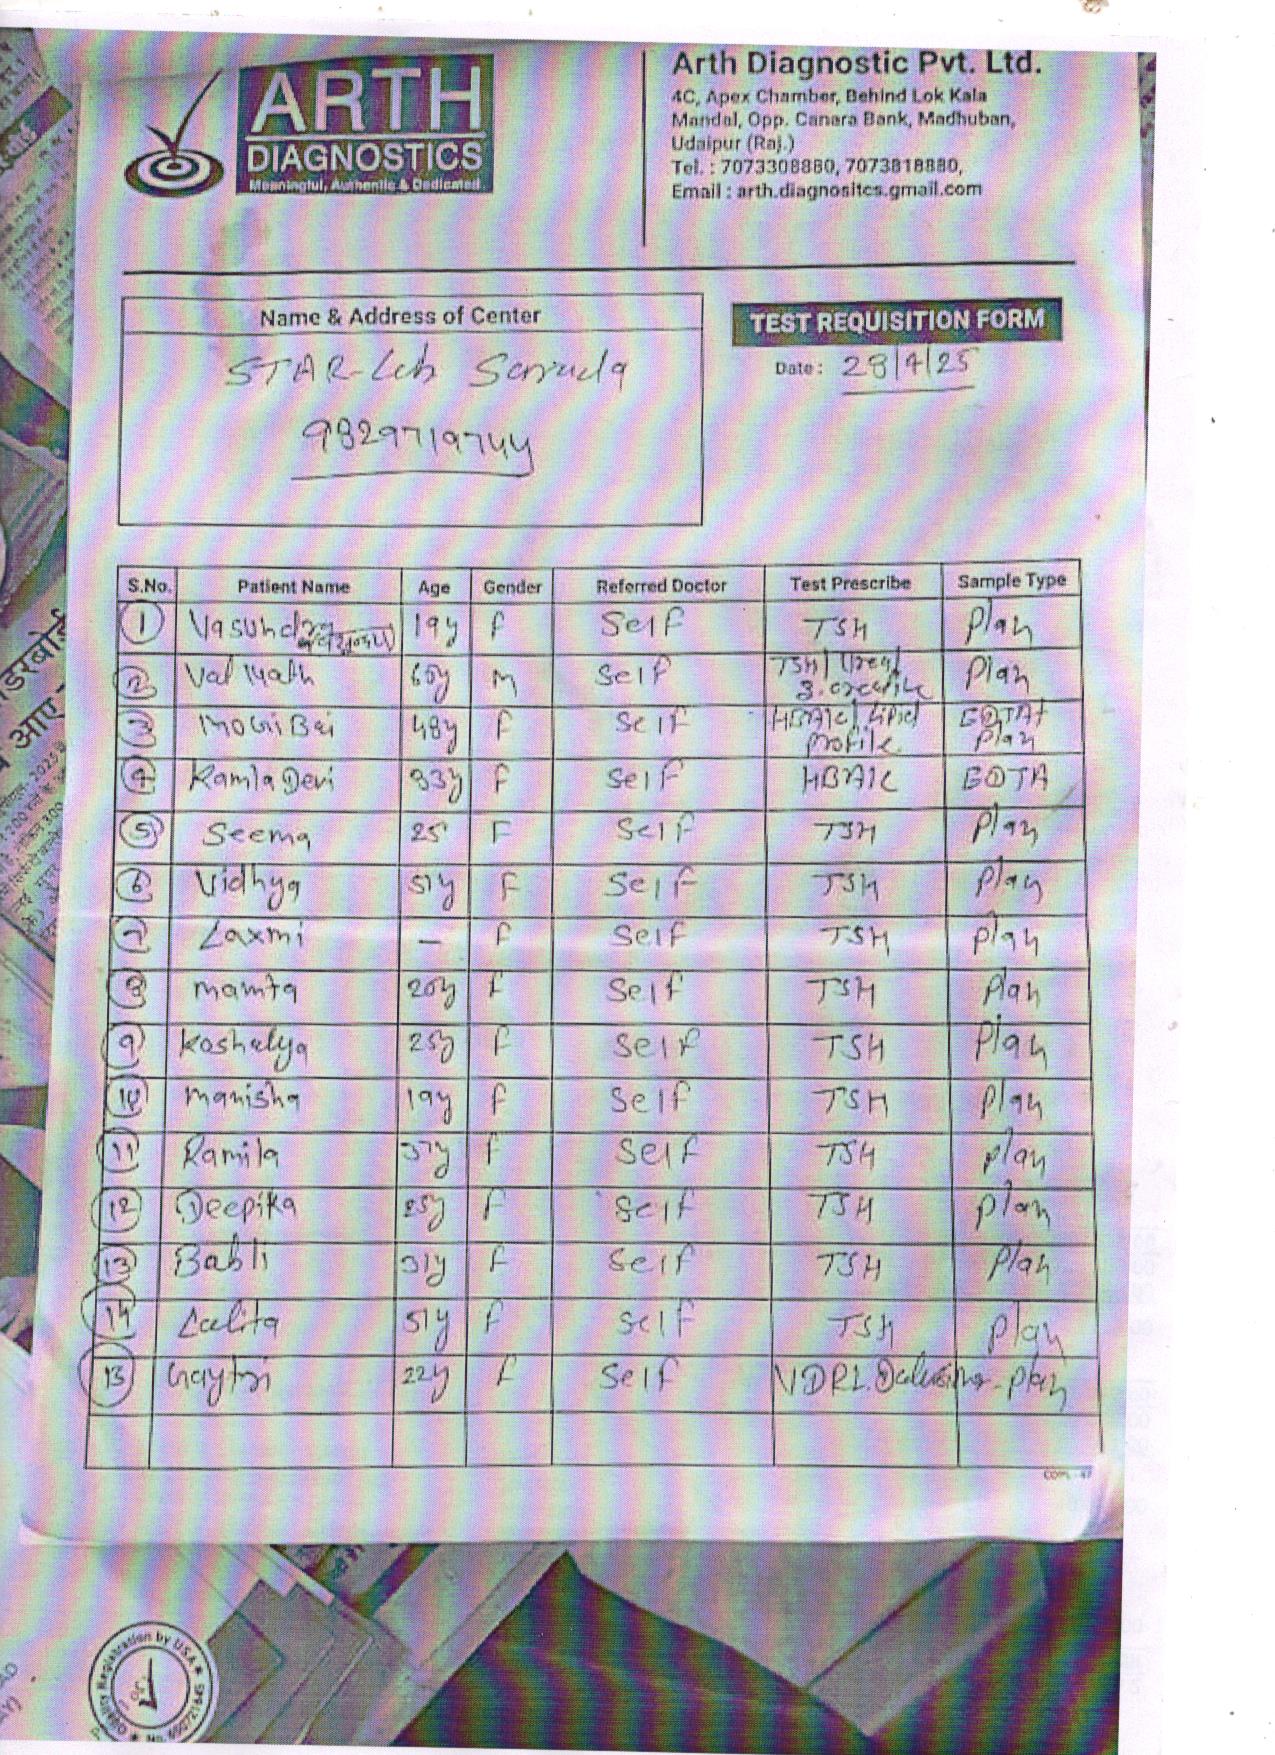 ARTH
DIAGNOSTICS
Meaningful, Authentic & Dedicated
Arth Diagnostic Pvt. Ltd.
4C, Apex Chamber, Behind Lok Kala
Mandal, Opp. Canara Bank, Madhuban,
Udaipur (Raj.)
Tel. : 7073308880, 7073818880,
Email : arth.diagnosites.gmail.com
Name & Address of Center
STAR-Lab
9829719744
TEST REQUISITION FORM
Date : 28/4/25
S.No. Patient Name Age Gender Referred Doctor Test Prescribe Sample Type
1 Vasundra 19y F Self TSH Plan
2 60y M Self TSH/Urea/ S.creatine Plan
3 Modi Bai 48y F Self HBA1C/Lipid profile EDTA+ Plan
4 Kamla Devi 33y F Self HBA1C EDTA
5 Seema 25 F Self TSH Plan
6 Vidhya 51y F Self TSH Plan
7 Laxmi — F Self TSH Plan
8 mamta 20y F Self TSH Plan
9 Koshalya 25y F Self TSH Plan
10 manisha 19y F Self TSH Plan
11 Ramila 37y F Self TSH Plan
12 Deepika 25y F Self TSH Plan
13 Babli 31y F Self TSH Plan
14 Lalita 51y F Self TSH Plan
15 Gaytri 22y F Self VDRL. Plan